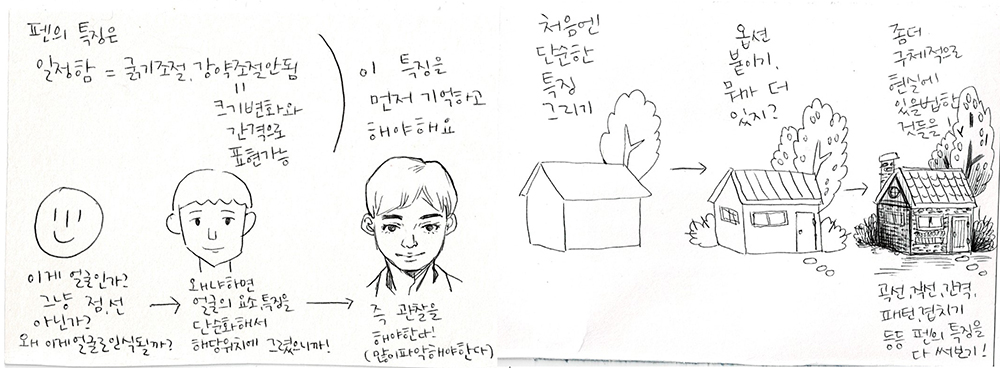 펜의 특징은
일정함 = 굵기조절, 강약조절안됨
=
크기변화와
간격으로
표현가능
이 특징을
먼저 기억하고
해야해요
이게 얼굴인가?
그냥 점,선
아닌가?
왜 이게얼굴로인식될까?
왜냐하면
얼굴의 요소,특징을
단순화해서
해당위치에 그렸으니까!
즉 관찰을
해야한다!
(많이파악해야한다)
처음엔
단순한
특징
그리기
옵션
붙이기,
뭐가 더
있지?
좀더
구체적으로
현실에
있을법한
것들을!
곡선,직선,간격,
패턴,겹치기
등등 펜의 특징을
다 써보기!